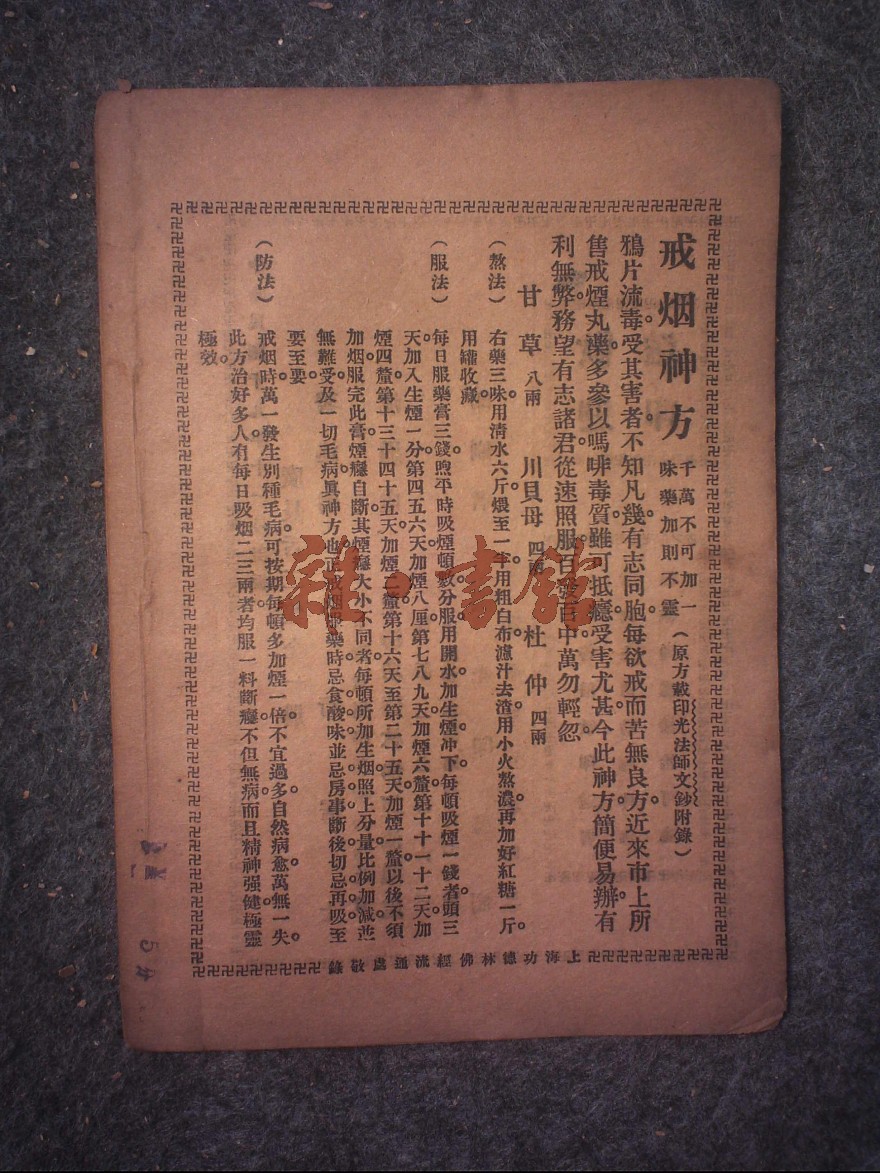 戒烟神方
千萬不可加一
味藥加則不靈
（原方載印光法師文鈔附錄）
鴉片流毒。受其害者。不知凡幾。有志同胞。每欲戒而苦無良方。近來市上所
售戒煙丸藥。多參以嗎啡毒質。雖可抵癮。受害尤甚。今此神方。簡便易辦。有
利無弊。務望有志諸君。從速照服。百發百中。萬勿輕忽。
甘草八兩　川貝母四兩　杜仲四兩
（熬法）　右藥三味。用清水六斤。煨至一半。用粗白布濾汁去渣。用小火熬濃。再加好紅糖一斤。
用罐收藏。
（服法）　每日服藥膏三錢。照平時吸煙頓數分服。用開水加生煙冲下。每頓吸煙一錢者。頭三
天加入生煙一分。第四五六天加煙八厘。第七八九天加煙六釐。第十十一十二天加
煙四釐。第十三十四十五天加煙二釐。第十六天至第二十五天加煙一釐。以後不須
加烟。服完此膏。煙癮自斷。其煙癮大小不同者。每頓所加生烟。照上分量比例加減。並
無難受。及一切毛病。眞神方也。正戒烟服藥時。忌食酸味。並忌房事。斷後切忌再吸。至
要至要。
（防法）　戒烟時。萬一發生別種毛病。可按期每頓多加煙一倍。不宜過多。自然病愈。萬無一失。
此方治好多人。有每日吸烟一二三兩者。均服一料斷癮。不但無病。而且精神强健。極靈
極效
上海功德林佛經流通處敬錄
雜·書館